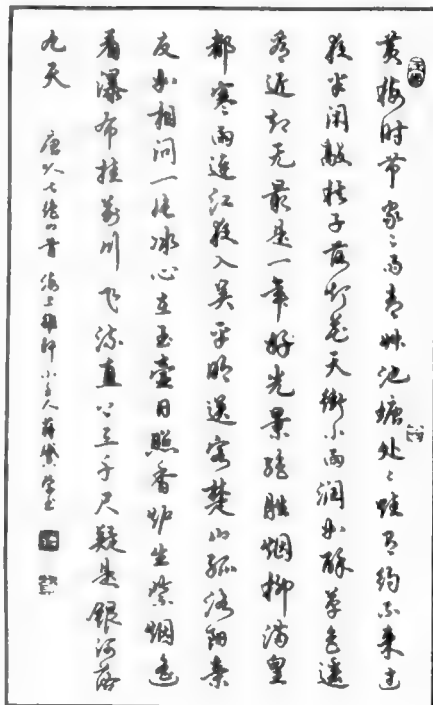 黄梅时节家々雨青草池塘处々蛙有约不来过
夜半闲敲棋子落灯花天街小雨润如酥草色遥
看近却无最是一年好光景绝胜烟柳满皇
都寒雨连江夜入吴平明送客楚山孤洛阳亲
友如相问一片冰心在玉壶日照香炉生紫烟遥
看瀑布挂前川飞流直下三千尺疑是银河落
九天
唐人七绝四首 海上 小主人蒋